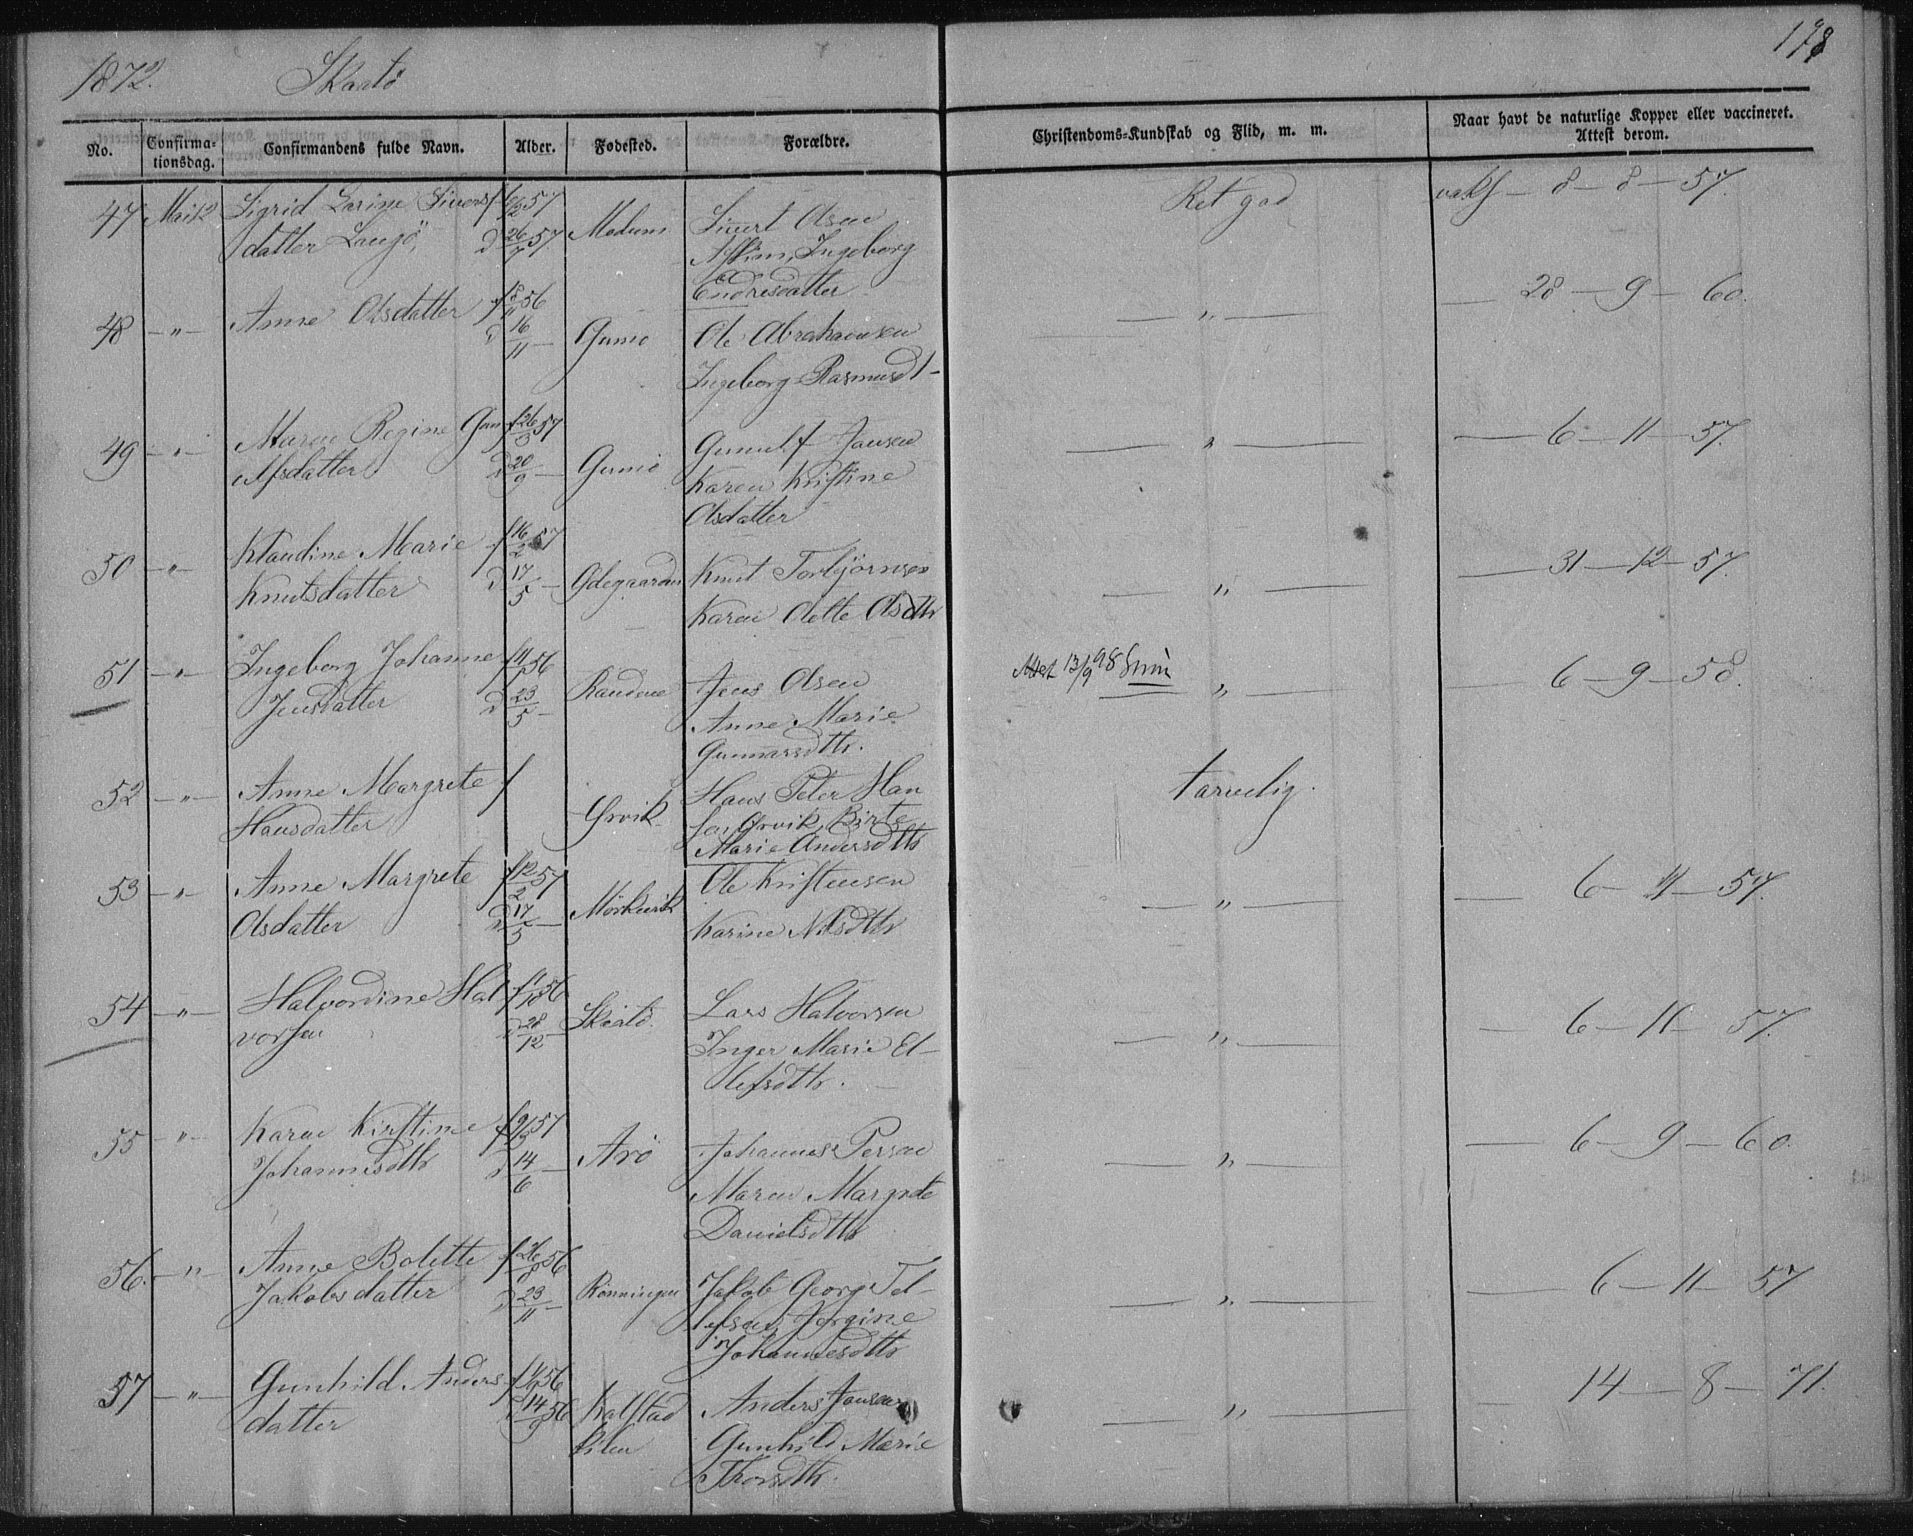 1872. Skaatö
178
No. Confirma-tionsdag. Confirmandens fulde Navn. Alder. Fødested. Forældre. Christendoms-Kundskab og Flid, m. m. Naar havt de naturlige Kopper eller vaccineret. Attest derom.
47 Mai 12 Sigrid Larine Siverts f 57 Ret god vaks — 8 — 8 — 57.
datter Langö, d 26/7 57 Sivert Olsen
Ingeborg
Endresdatter
48 — " — Anne Olsdatter f 56 — " — — 28 — 9 — 60.
d 16/11 — Gumö Ole Abrahamsen
Ingeborg Rasmusd
49 — " — Maren Regine Gun f 26/3 57 Gunulf Jansen — " — — 6 — 11 — 57.
ulfsdatter d 20/9 — Gumö Karen Kristine
Olsdatter
50 — " — Klaudine Marie f 16/2 57 — 31 — 12 — 57.
Knutsdatter d 17/5 — Ødegaarden Knut Torbjörnsen — " —
Karen Olette Olsdtr
51 — " — Ingeborg Johanne f 56 Attest 13/9 98 — 6 — 9 — 58.
Jensdatter d 23/5 — Jens Olsen — " —
Anne Marie
Gunnarsdtr.
52 — " — Anne Margrete f Hans Peter Han tarvelig.
Hansdatter Ørvik sen Ørvik, Birte
Marie Andersdtr
53 — " — Anne Margrete f 12/2 57 Ole Kristensen — 6 — 11 — 57.
Olsdatter d 17/5 — Mörkvik Karine Nilsdtr — " —
54 — " — Halvordine Hal f 1/10 56 Lars Halvorsen — 6 — 11 — 57.
vorsen d 28/12 — Skaatö. Inger Marie El- — " —
lefsdtr.
55 — " — Karen Kirstine f 9/3 57 — 6 — 9 — 60.
Johannesdtr d 14/6 — Arö Johannes Persen — " —
Maren Margrete
Danielsdtr
56. — " — Anne Bolette f 26/8 56 — 6 — 11 — 57
Jakobsdatter d 23/11 — Rønningen Jakob Georg Tel- — " —
lefsen, Jorgine
Johannesdtr
57 — " — Gunhild Anders f 56 — 14 — 8 — 71.
datter d 14/9 56 Kalstad Anders Jansen — " —
kilen Gunhild Marie
Thorsdtr.